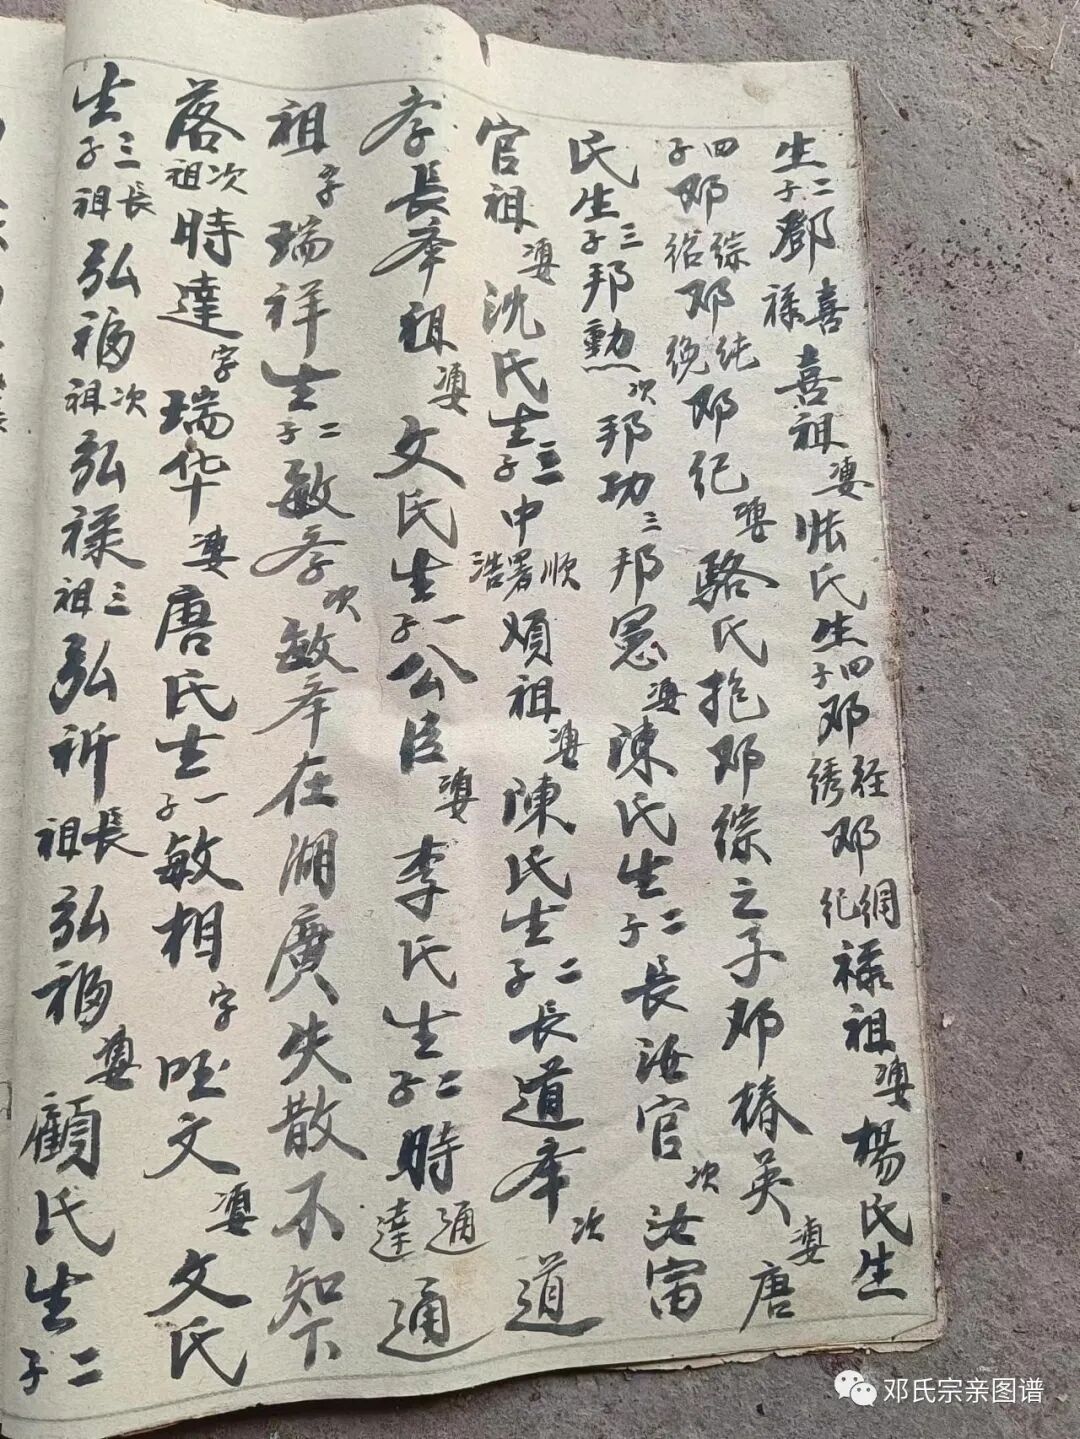 生二子鄧喜禄喜祖娶张氏生四子邓经绣邓綱纪禄祖娶楊氏生
四子邓綜绍邓纯邓纪娶駱氏抱邓综之子邓椿英娶唐
氏生三子邦勲次邦功三邦宪娶陳氏生二子長汝官次汝富
官祖娶沈氏生三子中順署浩順祖娶陳氏生二子長道奉次道
孝長奉祖娶文氏生一子公臣娶李氏生二子時通達通
祖字瑞祥生二子敏孝次敏奉在湖廣失散不知下
落次祖時達字瑞华娶唐氏生一子敏相字文娶文氏
生三子長祖弘福次祖弘禄三祖弘祈長祖弘福娶顧氏生二子
邓氏宗亲图谱